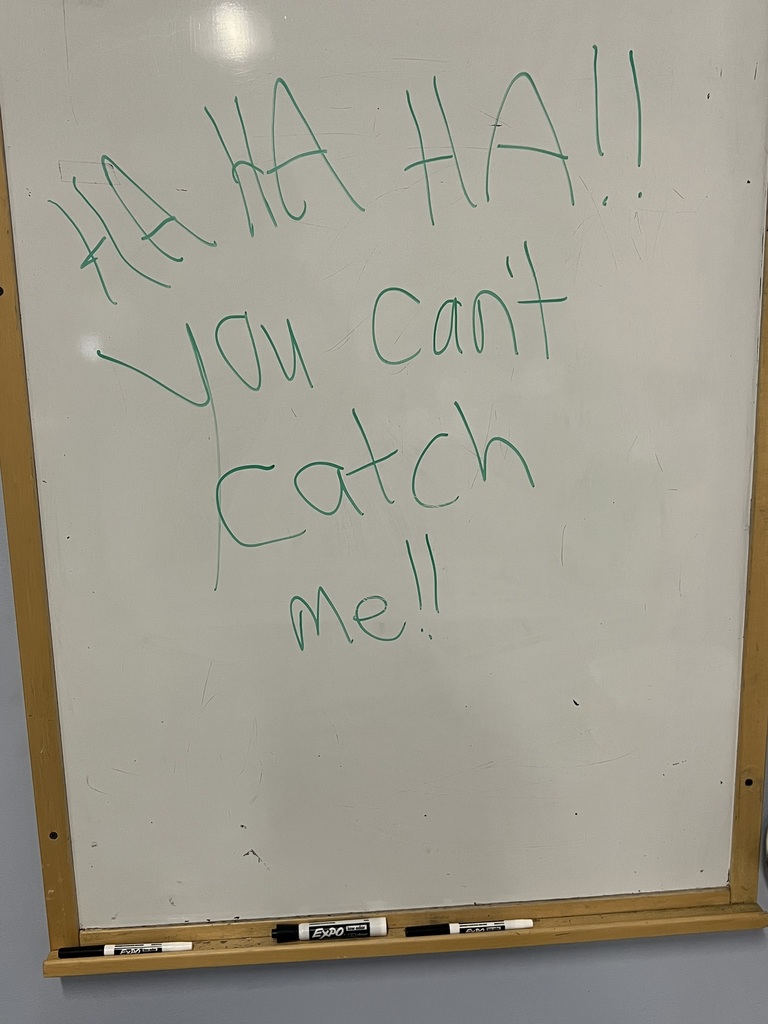 HA HA HA!!
you can't
catch
me!!
EXPO EXPO EXPO